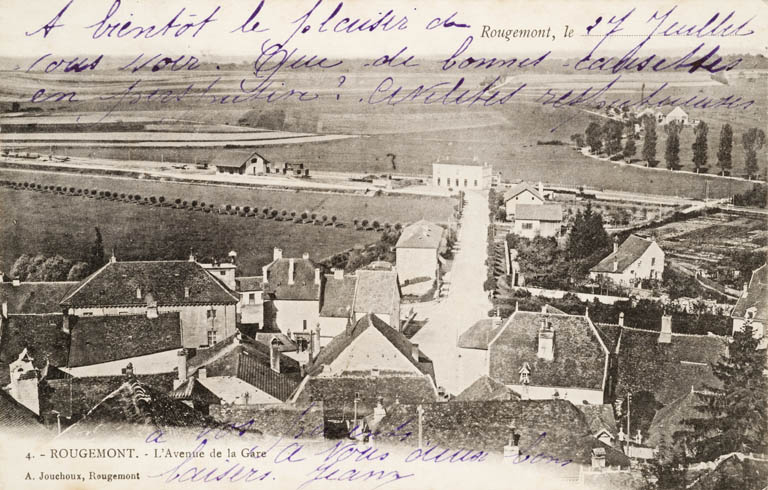 A bientôt le plaisir de
Rougemont, le 27 Juillet
vous voir. Que de bonnes causettes
en perspective ? Amitiés respectueuses
à vos parents
4. - ROUGEMONT. - L'Avenue de la Gare
A vous deux bons
A. Jouchoux, Rougemont
baisers. Jeanx